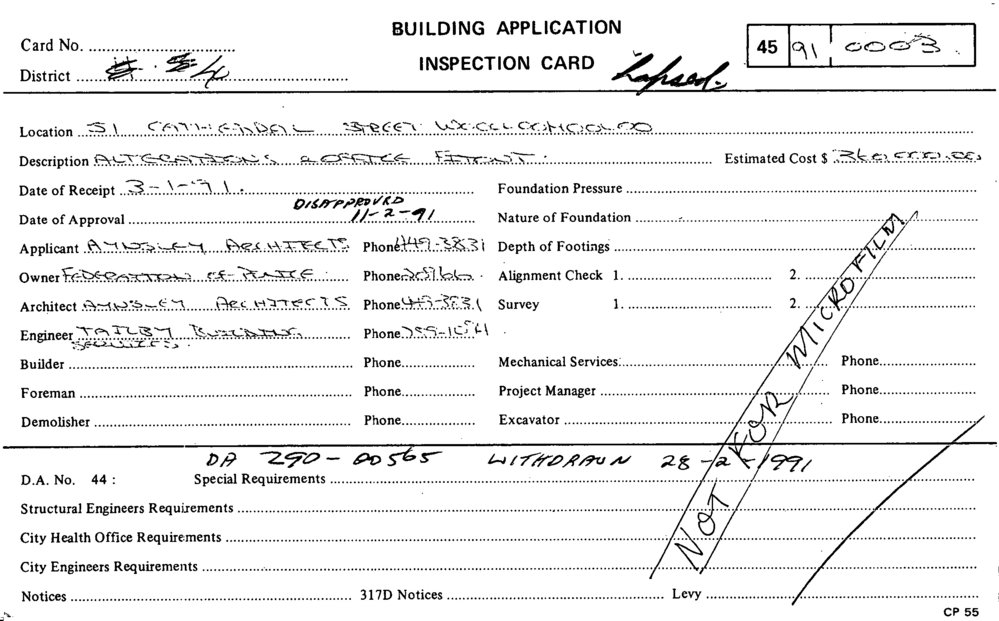 BUILDING APPLICATION
INSPECTION CARD
Card No.
45 91 0003
District 54
Lapsed.
Location 51 CATHEDRAL STREET WOOLLOOMOOLOO
Description ALTERATIONS & OFFICE FITOUT. Estimated Cost $ 360,000.00
Date of Receipt 3-1-91. Foundation Pressure
DISAPPROVED
Date of Approval 11-2-91 Nature of Foundation
Applicant AYNSLEY ARCHITECTS Phone 449-3831 Depth of Footings
Owner FEDERATION OF Phone Alignment Check 1. 2.
Architect AYNSLEY ARCHITECTS Phone 449-3831 Survey 1. 2.
Engineer TAILBY BUILDING Phone
SERVICES
Builder Phone Mechanical Services: Phone
Foreman Phone Project Manager Phone
Demolisher Phone Excavator Phone
NOT FOR MICROFILM
DA Z90-00565 WITHDRAWN 28-2-1991
D.A. No. 44 : Special Requirements
Structural Engineers Requirements
City Health Office Requirements
City Engineers Requirements
Notices 317D Notices Levy
CP 55